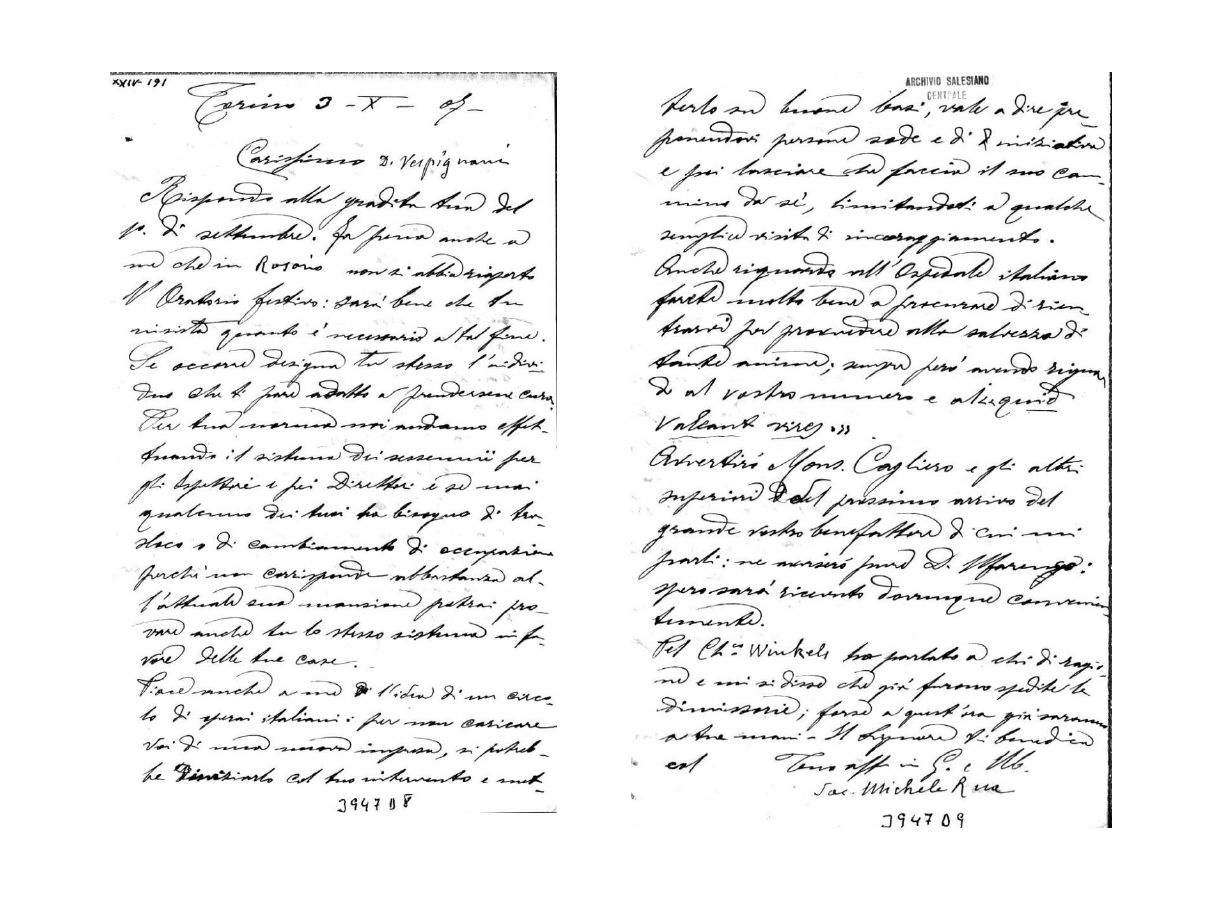 XXIV 191
Torino 3 - X - 05 -
Carissimo D. Vespignani
Rispondo alla gradita tua del
1º. di settembre. Fa pena anche a
me che in Rosario non si abbia riaperto
l'Oratorio festivo: sarà bene che tu
insista quanto è necessario a tal fine.
Se occorre designa tu stesso l'indivi-
duo che ti pare adatto a prendersene cura.
Per tua norma noi andiamo effet-
tuando il sistema dei sessennii per
gli Ispettori e pei Direttori e se mai
qualcuno dei tuoi ha bisogno di tra-
sloco o di cambiamento di occupazione
perché non corrisponde abbastanza al-
l'attuale sua mansione potrai pro-
vare anche tu lo stesso sistema in fa-
vore delle tue case.
Piace anche a me l'idea di un circo-
lo di operai italiani: per non caricare
voi di una nuova impresa, si potreb-
be iniziarlo col tuo intervento e met-
3947 D 8
ARCHIVIO SALESIANO
CENTRALE
terlo su buone basi, vale a dire pre-
ponendovi persone sode e di iniziativa
e poi lasciare che faccia il suo cam-
mino da sé, limitandoti a qualche
semplice visita di incoraggiamento.
Anche riguardo all'Ospedale italiano
farete molto bene a procurare di rien-
trarvi per provvedere alla salvezza di
tante anime; sempre però avendo riguar-
do al vostro numero e al quid
valeant vires.»
Avvertirò Mons. Cagliero e gli altri
superiori del prossimo arrivo del
grande vostro benefattore di cui mi
parli: ne avviserò pure D. Marengo:
spero sarà ricevuto dovunque convenien-
temente.
Pel Ch.co Winkels ho parlato a chi di ragio-
ne e mi si disse che già furono spedite le
dimissorie; forse a quest'ora già saranno
a tue mani - Il Signore ti benedica
col Tuo aff in G. e M.
Sac. Michele Rua
3947 D9